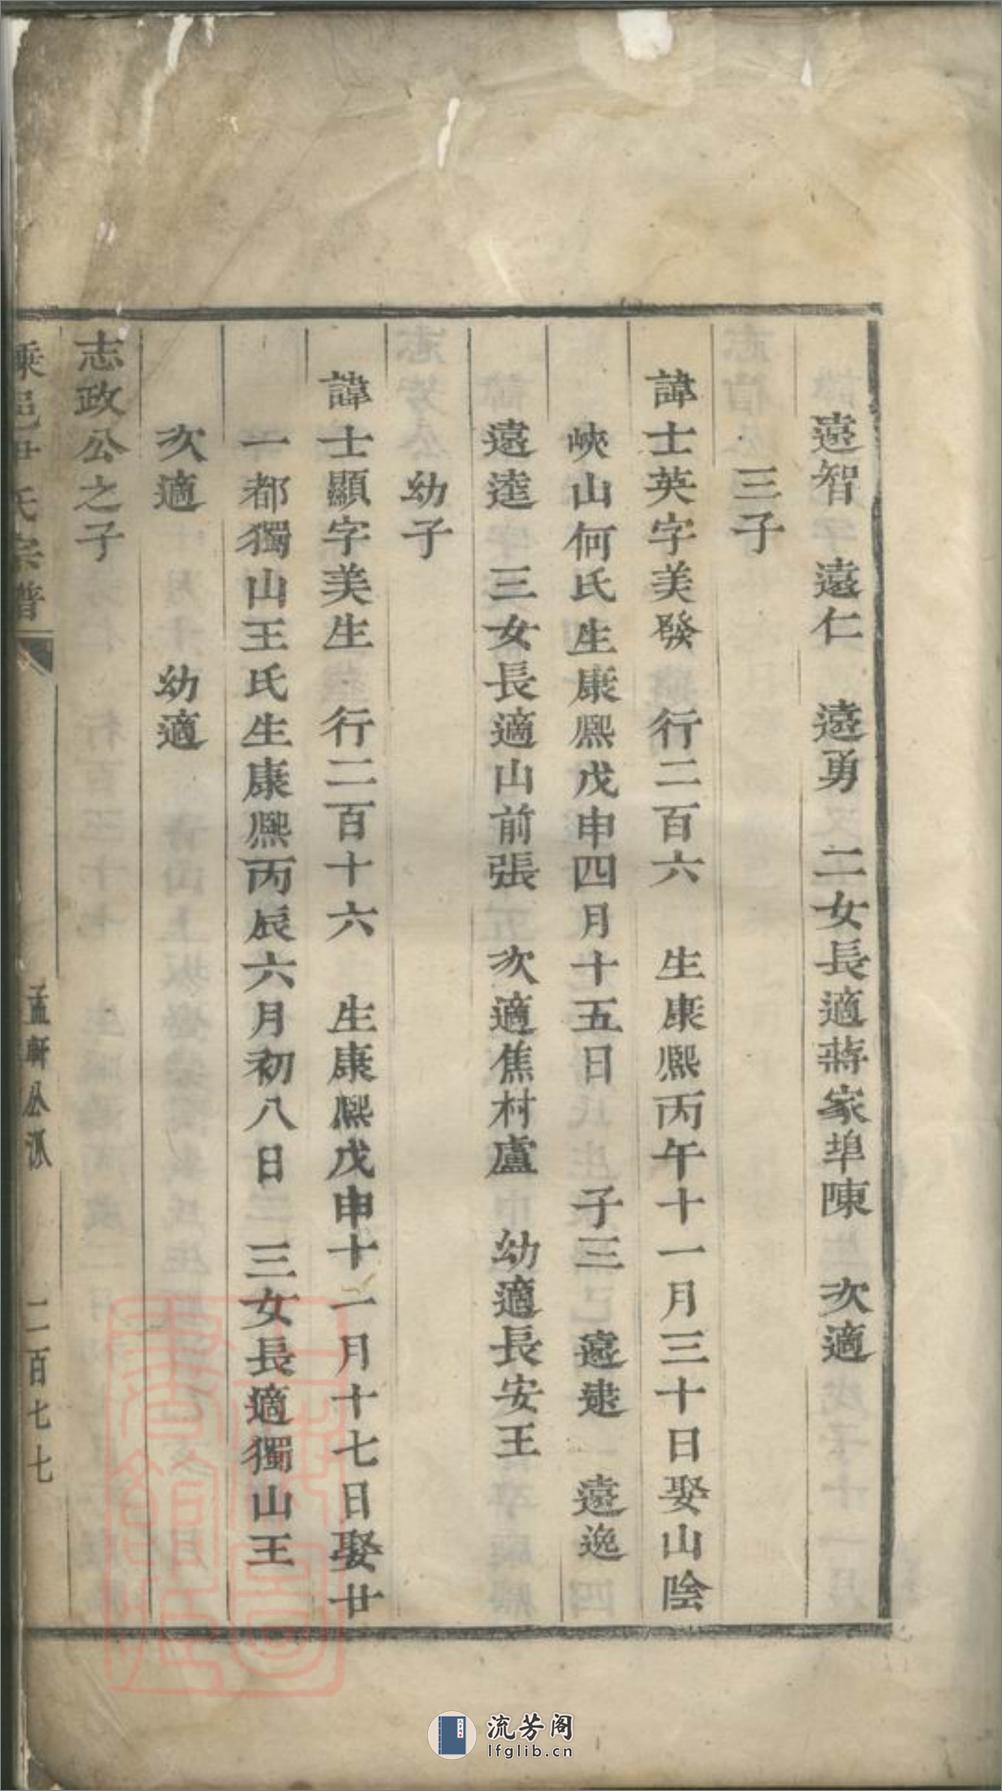 遠智　遠仁　遠勇　二女長適蔣家埠陳　次適
三子
諱士英字美發　行二百六　生康熙丙午十一月三十日娶山陰
峽山何氏生康熙戊申四月十五日　子三　遠逮　遠逸
遠逵　三女長適山前張　次適焦村盧　幼適長安王
幼子
諱士顯字美生　行二百十六　生康熙戊申十一月十七日娶廿
一都獨山王氏生康熙丙辰六月初八日　三女長適獨山王
次適　　　幼適
志政公之子
氏宗譜　孟軒公派　二百七七
流芳阁
lfglib.cn